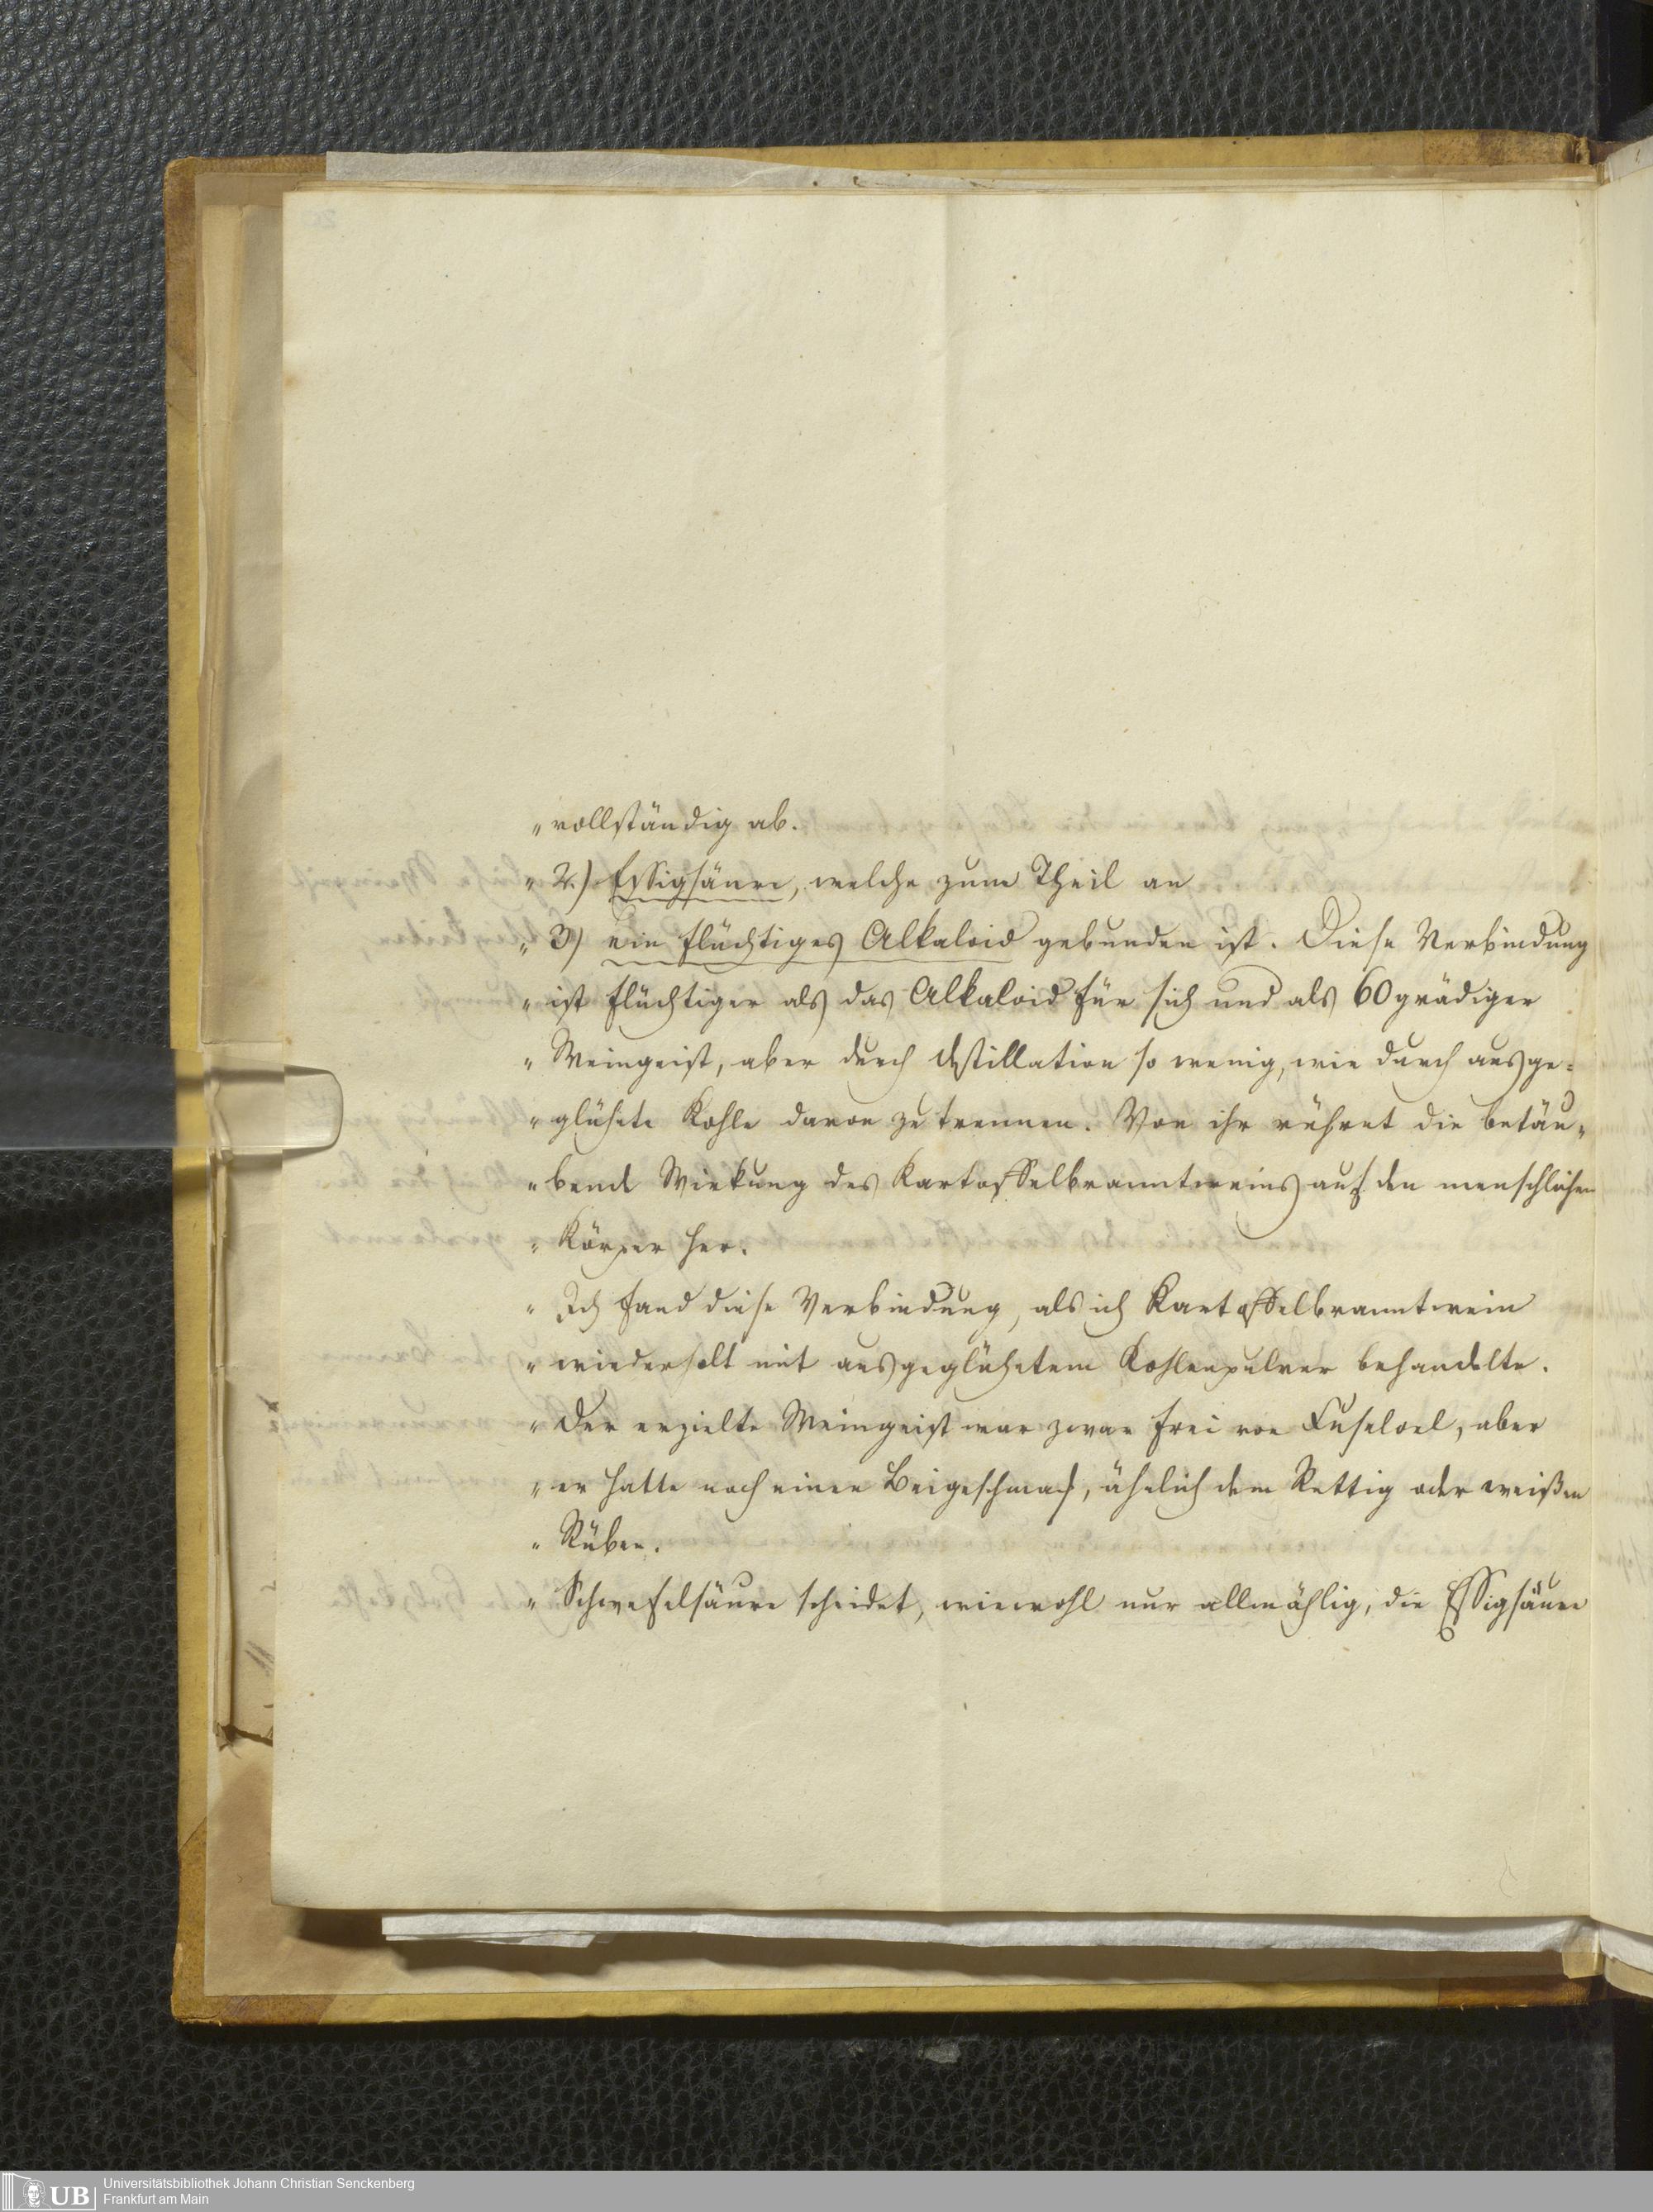 „ vollständig ab.
„ 2.) Essigsäure, welche zum Theil an
„ 3) ein flüchtiges Alkaloid gebunden ist. Diese Verbindung
„ ist flüchtiger als das Alkaloid für sich und als 60grädiger
„ Weingeist, aber durch Destillation so wenig, wie durch ausge-
„ glühete Kohle davon zu trennen. Von ihr rühret die betäu-
„ bende Wirkung des Kartoffelbranntweins auf den menschlichen
„ Körper her.
„ Ich fand diese Verbindung, als ich Kartoffelbranntwein
„ wiederholt mit ausgeglühetem Kohlenpulver behandelte.
„ Der erzielte Weingeist war zwar frei von Fuseloel, aber
„ er hatte noch einen Beigeschmack, ähnlich dem Rettig oder weißen
„ Rüben.
„ Schwefelsäure scheidet, wiewohl nur allmählig, die Essigsäure
UB Universitätsbibliothek Johann Christian Senckenberg
Frankfurt am Main